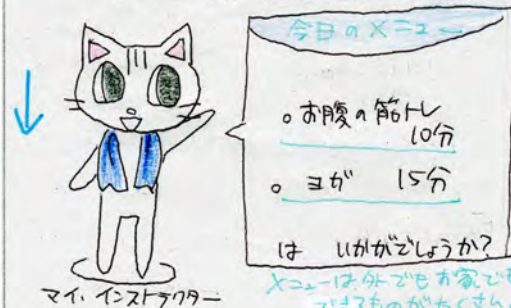 今日のメニュー
。お腹の筋トレ
10分
。ヨガ 15分
は いかがでしょうか?
マイ、インストラクター
メニューは外でもお家でも
できるものがたくさん